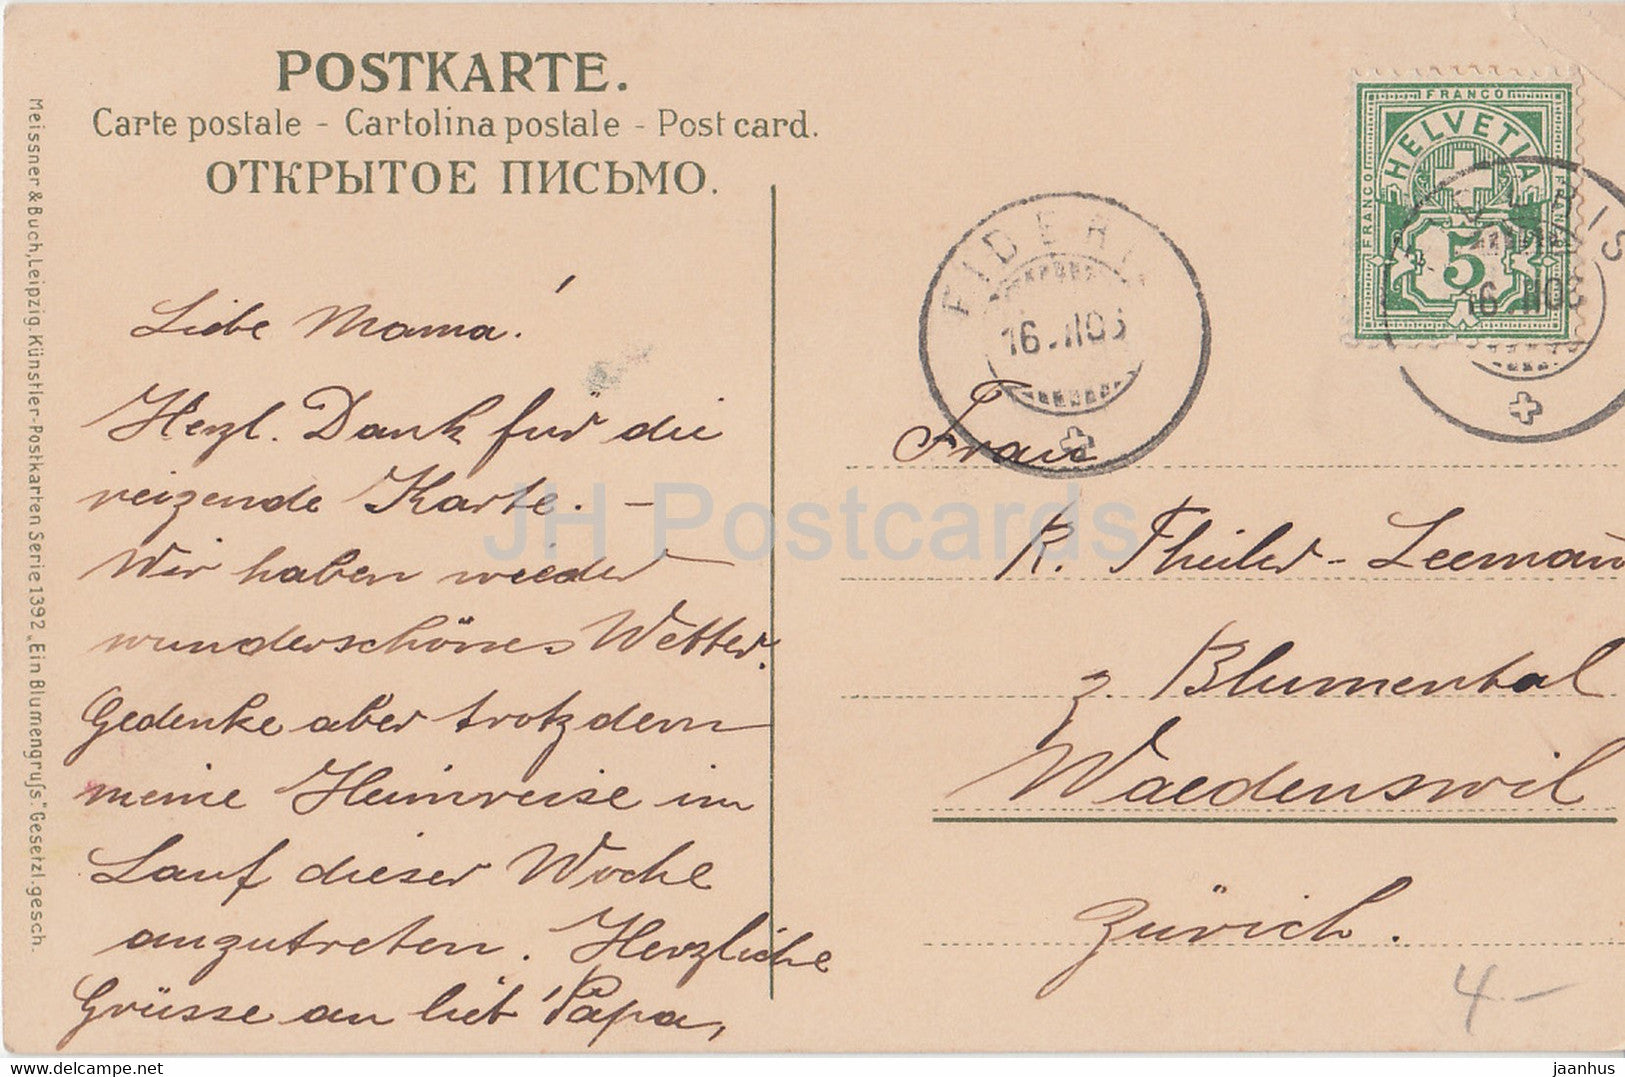 POSTKARTE.
Carte postale - Cartolina postale - Post card.
ОТКРЫТОЕ ПИСЬМО.
Meissner & Buch, Leipzig. Künstler-Postkarten Serie 1392 „Ein Blumengruſs." Gesetzl. gesch.
Liebe Mama!
Herzl. Dank für die
reizende Karte. –
Wir haben wieder
wunderschönes Wetter.
Gedenke aber trotzdem
meine Heimreise im
Lauf dieser Woche
anzutreten. Herzliche
Grüsse an lieb Papa,
FIDERIS
16.
FRANCO
HELVETIA
FRANCO
5
FIDERIS
16.
Frau
R. Theiler-Leemann
z. Blumental
Waedenswil
Zürich.
4.–
JH Postcards
delcampe.net
jaanhus